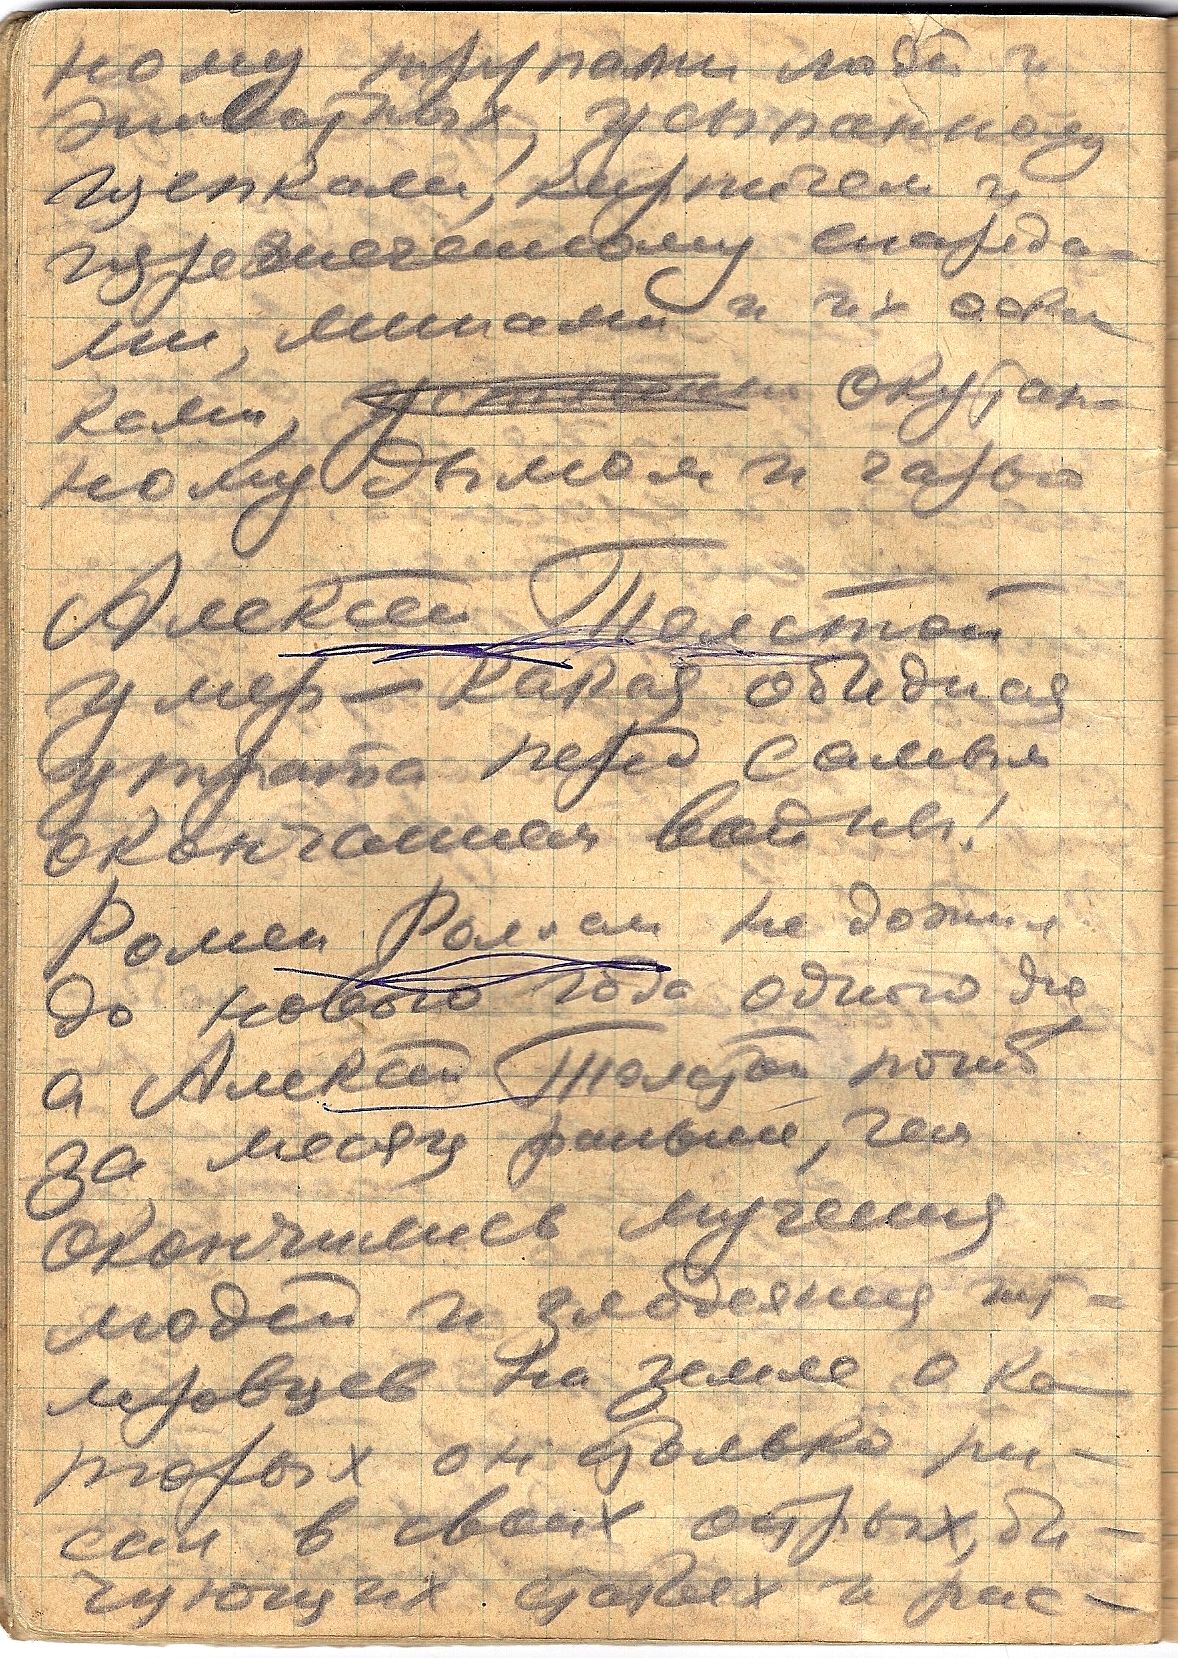 ному трупами людей и
животных, усыпанному
щепками, кирпичем и
изрешеченному снаряда-
ми, минами и их оскол
ками, окутан-
ному дымом и гарью
Алексей Толстой
умер — какая обидная
утрата перед самым
окончанием войны!
Ромен Роллан не дожил
до нового года одного дня
а Алексей Толстой погиб
за месяц раньше, чем
окончились мучения
людей и злодеяния гит-
леровцев на земле о ко-
торых он столько пи-
сал в своих острых, би-
чующих статьях и рас-